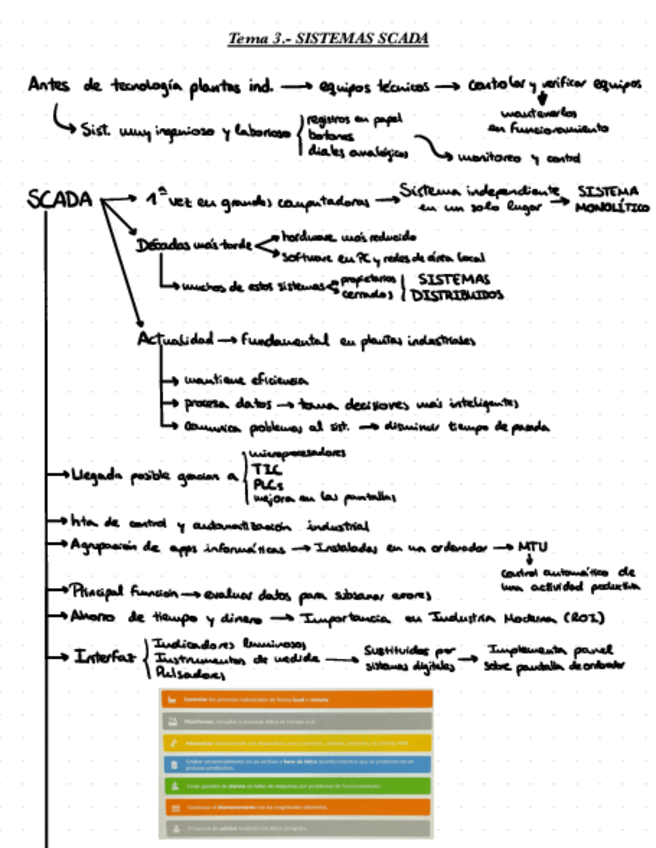 Tema 3.- SISTEMAS SCADA
Antes de tecnología plantas ind. → equipos técnicos → controlar y verificar equipos
↓
mantenerlos
en funcionamiento
Sist. muy ingenioso y laborioso
registros en papel
botones
diales analógicos
→ monitoreo y control
SCADA → 1ª vez en grandes computadoras → Sistema independiente
en un solo lugar → SISTEMA
MONOLÍTICO
Décadas más tarde
→ hardware más reducido
→ software en PC y redes de área local
→ muchos de estos sistemas
propietarios
cerrados
SISTEMAS
DISTRIBUIDOS
Actualidad → Fundamental en plantas industriales
→ mantiene eficiencia
→ procesa datos → toma decisiones más inteligentes
→ comunica problemas al sist. → disminuir tiempo de parada
→ Llegada posible gracias a
microprocesadores
TIC
PLCs
mejora en las pantallas
→ hta de control y automatización industrial
→ Agrupación de apps informáticas → Instaladas en un ordenador → MTU
↓
control automático de
una actividad productiva
→ Principal función → evaluar datos para subsanar errores
→ Ahorro de tiempo y dinero → Importancia en Industria Moderna (ROI)
→ Interfaz
Indicadores luminosos
Instrumentos de medida
Pulsadores
→ Sustituidos por
sistemas digitales
→ Implementa panel
sobre pantalla de ordenador
Controlar los procesos industriales de forma local o remota.
Monitorizar, recopilar y procesar datos en tiempo real.
Grabar secuencialmente en un archivo o base de datos acontecimientos que se producen en un
proceso productivo.
Crear paneles de alarma en fallos de máquinas por problemas de funcionamiento.
Gestionar el Mantenimiento con las magnitudes obtenidas.